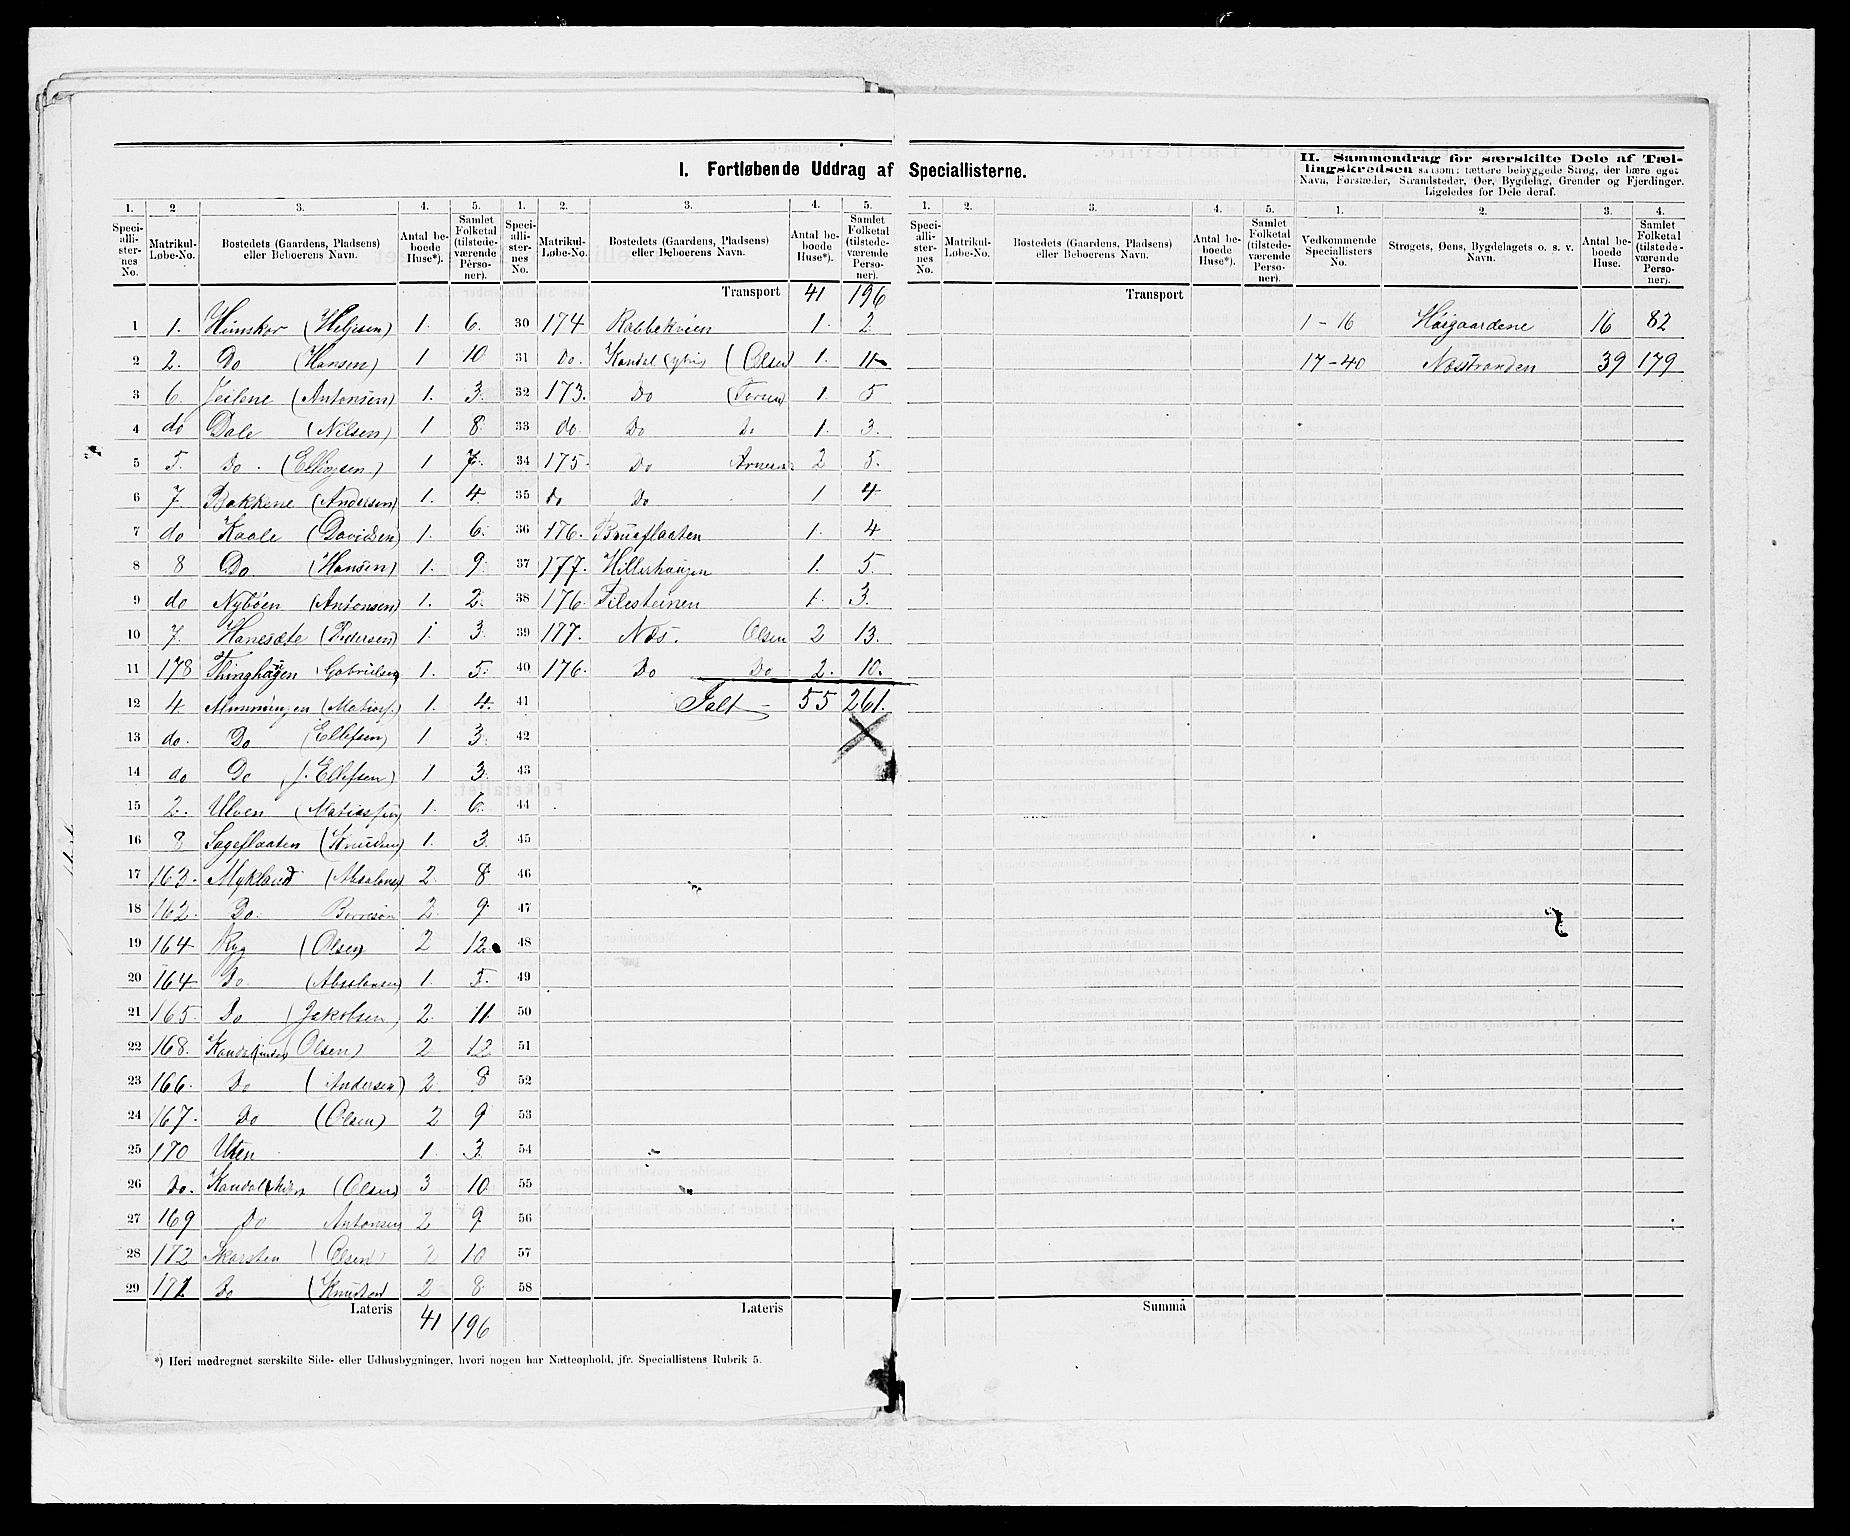 I. Fortløbende Uddrag af Speciallisterne.
II. Sammendrag for særskilte Dele af Tællingskredsen saasom: tættere bebyggede Strøg, der bære eget
Navn, Forstæder, Strandsteder, Øer, Bygdelag, Grender og Fjerdinger.
Ligeledes for Dele deraf.
1. 2 3. 4. 5. 1. 2. 3. 4. 5. 1. 2. 3. 4. 5. 1. 2. 3. 4.
Speciallisternes No. Matrikul-Løbe-No. Bostedets (Gaardens, Pladsens) eller Beboerens Navn. Antal beboede Huse*). Samlet Folketal (tilstedeværende Personer).
Speciallisternes No. Matrikul-Løbe-No. Bostedets (Gaardens, Pladsens) eller Beboerens Navn. Antal beboede Huse*). Samlet Folketal (tilstedeværende Personer).
Speciallisternes No. Matrikul-Løbe-No. Bostedets (Gaardens, Pladsens) eller Beboerens Navn. Antal beboede Huse*). Samlet Folketal (tilstedeværende Personer).
Vedkommende Speciallisters No. Strøgets, Øens, Bygdelagets o. s. v. Navn. Antal beboede Huse. Samlet Folketal (tilstedeværende Personer).
1 1. (Heljesen) 1. 6.
2 2. Do (Hansen) 1 10
3 6. (Antonsen) 1. 3.
4 do Dale (Nilsen) 1 8
5 5. Do. 1 7.
6 7. Bakkene (Andersen) 1. 4.
7 do Kaale (Davidsen) 1. 6.
8 8 Do. (Hansen) 1. 9.
9 do Nybøen (Antonsen) 1. 2.
10 7. Hanesæte (Pedersen) 1. 3.
11 178 Thinghaugen (Gabrielsen 1. 5.
12 4 1. 4.
13 do. Do (Ellefsen) 1 3.
14 do Do (J. Ellefsen) 1 3.
15 2. Ulven 1. 6.
16 8 Sageflaaten (Knudsen) 1. 3.
17 163. Mykland (Absalonsen) 2. 8
18 162. Do. 2. 9.
19 164 Ryg (Olsen) 2 12.
20 164 Do. (Absalonsen) 1. 5.
21 165. Do (Jakobsen) 2. 11.
22 168. Kandal Olsen) 2 12
23 166. Do (Andersen) 2. 8
24 167. Do (Olsen) 2 9
25 170 1. 3.
26 Do. Kandal (Olsen) 3 10.
27 169 Do Antonsen 2 9
28 172 Skarsten (Olsen) 2 10
29 171 Do (Knudsen 2 8.
Lateris 41 196
Transport 41 196
30 174 1. 2.
31 Do. Kandal (ytre) (Olsen) 1. 11
32 173. Do 1. 5
33 do. Do Do 1. 3.
34 175. Do Arnesen 2 5.
35 Do Do 1 4
36 176. Bruaflaaten 1. 4
37 177. Hillerhaugen 1. 5.
38 176. Filesteinen 1. 3.
39 177. Næs. Olsen 2 13.
40 176. Do Do 2. 10.
41 Ialt 55 261.
42
43
44
45
46
47
48
49
50
51
52
53
54
55
56
57
58
Lateris
Transport
Summa
1 - 16 Høigaardene 16 82
17 - 40 Næsstranden 39 179
*) Heri medregnet særskilte Side- eller Udhusbygninger, hvori nogen har Natteophold, jfr. Speciallistens Rubrik 5.